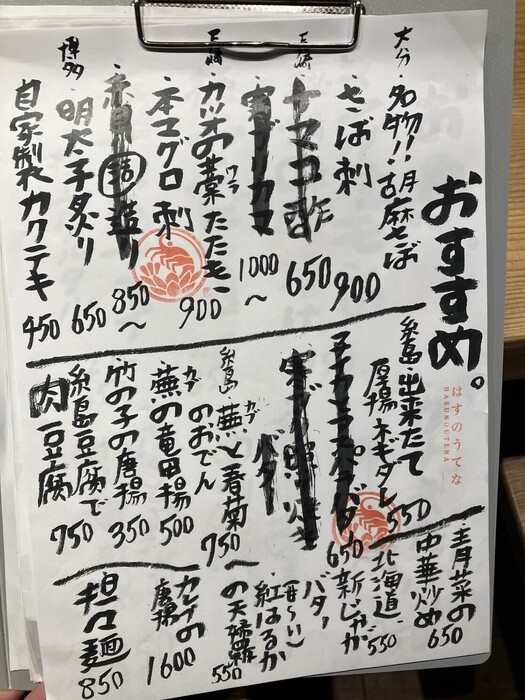 おすすめ。
はすのうてな
HASUNOUTENA
大分・名物!!胡麻さば
・さば刺 900
長崎・ナマコ酢 650
・寒ブリカマ 1000〜
長崎・カツオの藁たたき 900
ワラ
・本マグロ刺
850〜
博多・明太子炙り 650
自家製カクテキ 450
糸島・出来たて
厚揚ネギダレ 550
650
バター
糸島・蕪と春菊
カブ
のおでん 750〜
・蕪の竜田揚 500
カブ
竹の子の唐揚 350
糸島豆腐で
肉豆腐 750
青菜の
中華炒め 650
北海道 550
新じゃが
バター
紅はるか
の天婦羅 550
唐揚 1600
担々麺 850